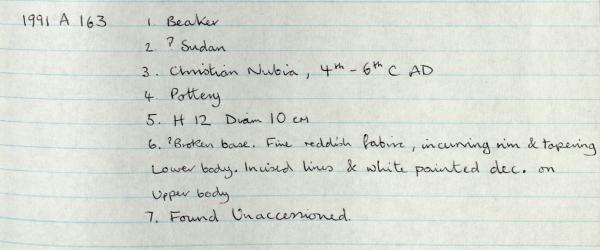 1991 A 163 1. Beaker
2. ? Sudan
3. Christian Nubia, 4th - 6th C AD
4. Pottery
5. H 12 Diam 10 cm
6. ?Broken base. Fine reddish fabric, incurving rim & tapering
Lower body. Incised lines & white painted dec. on
Upper body
7. Found Unaccessioned.